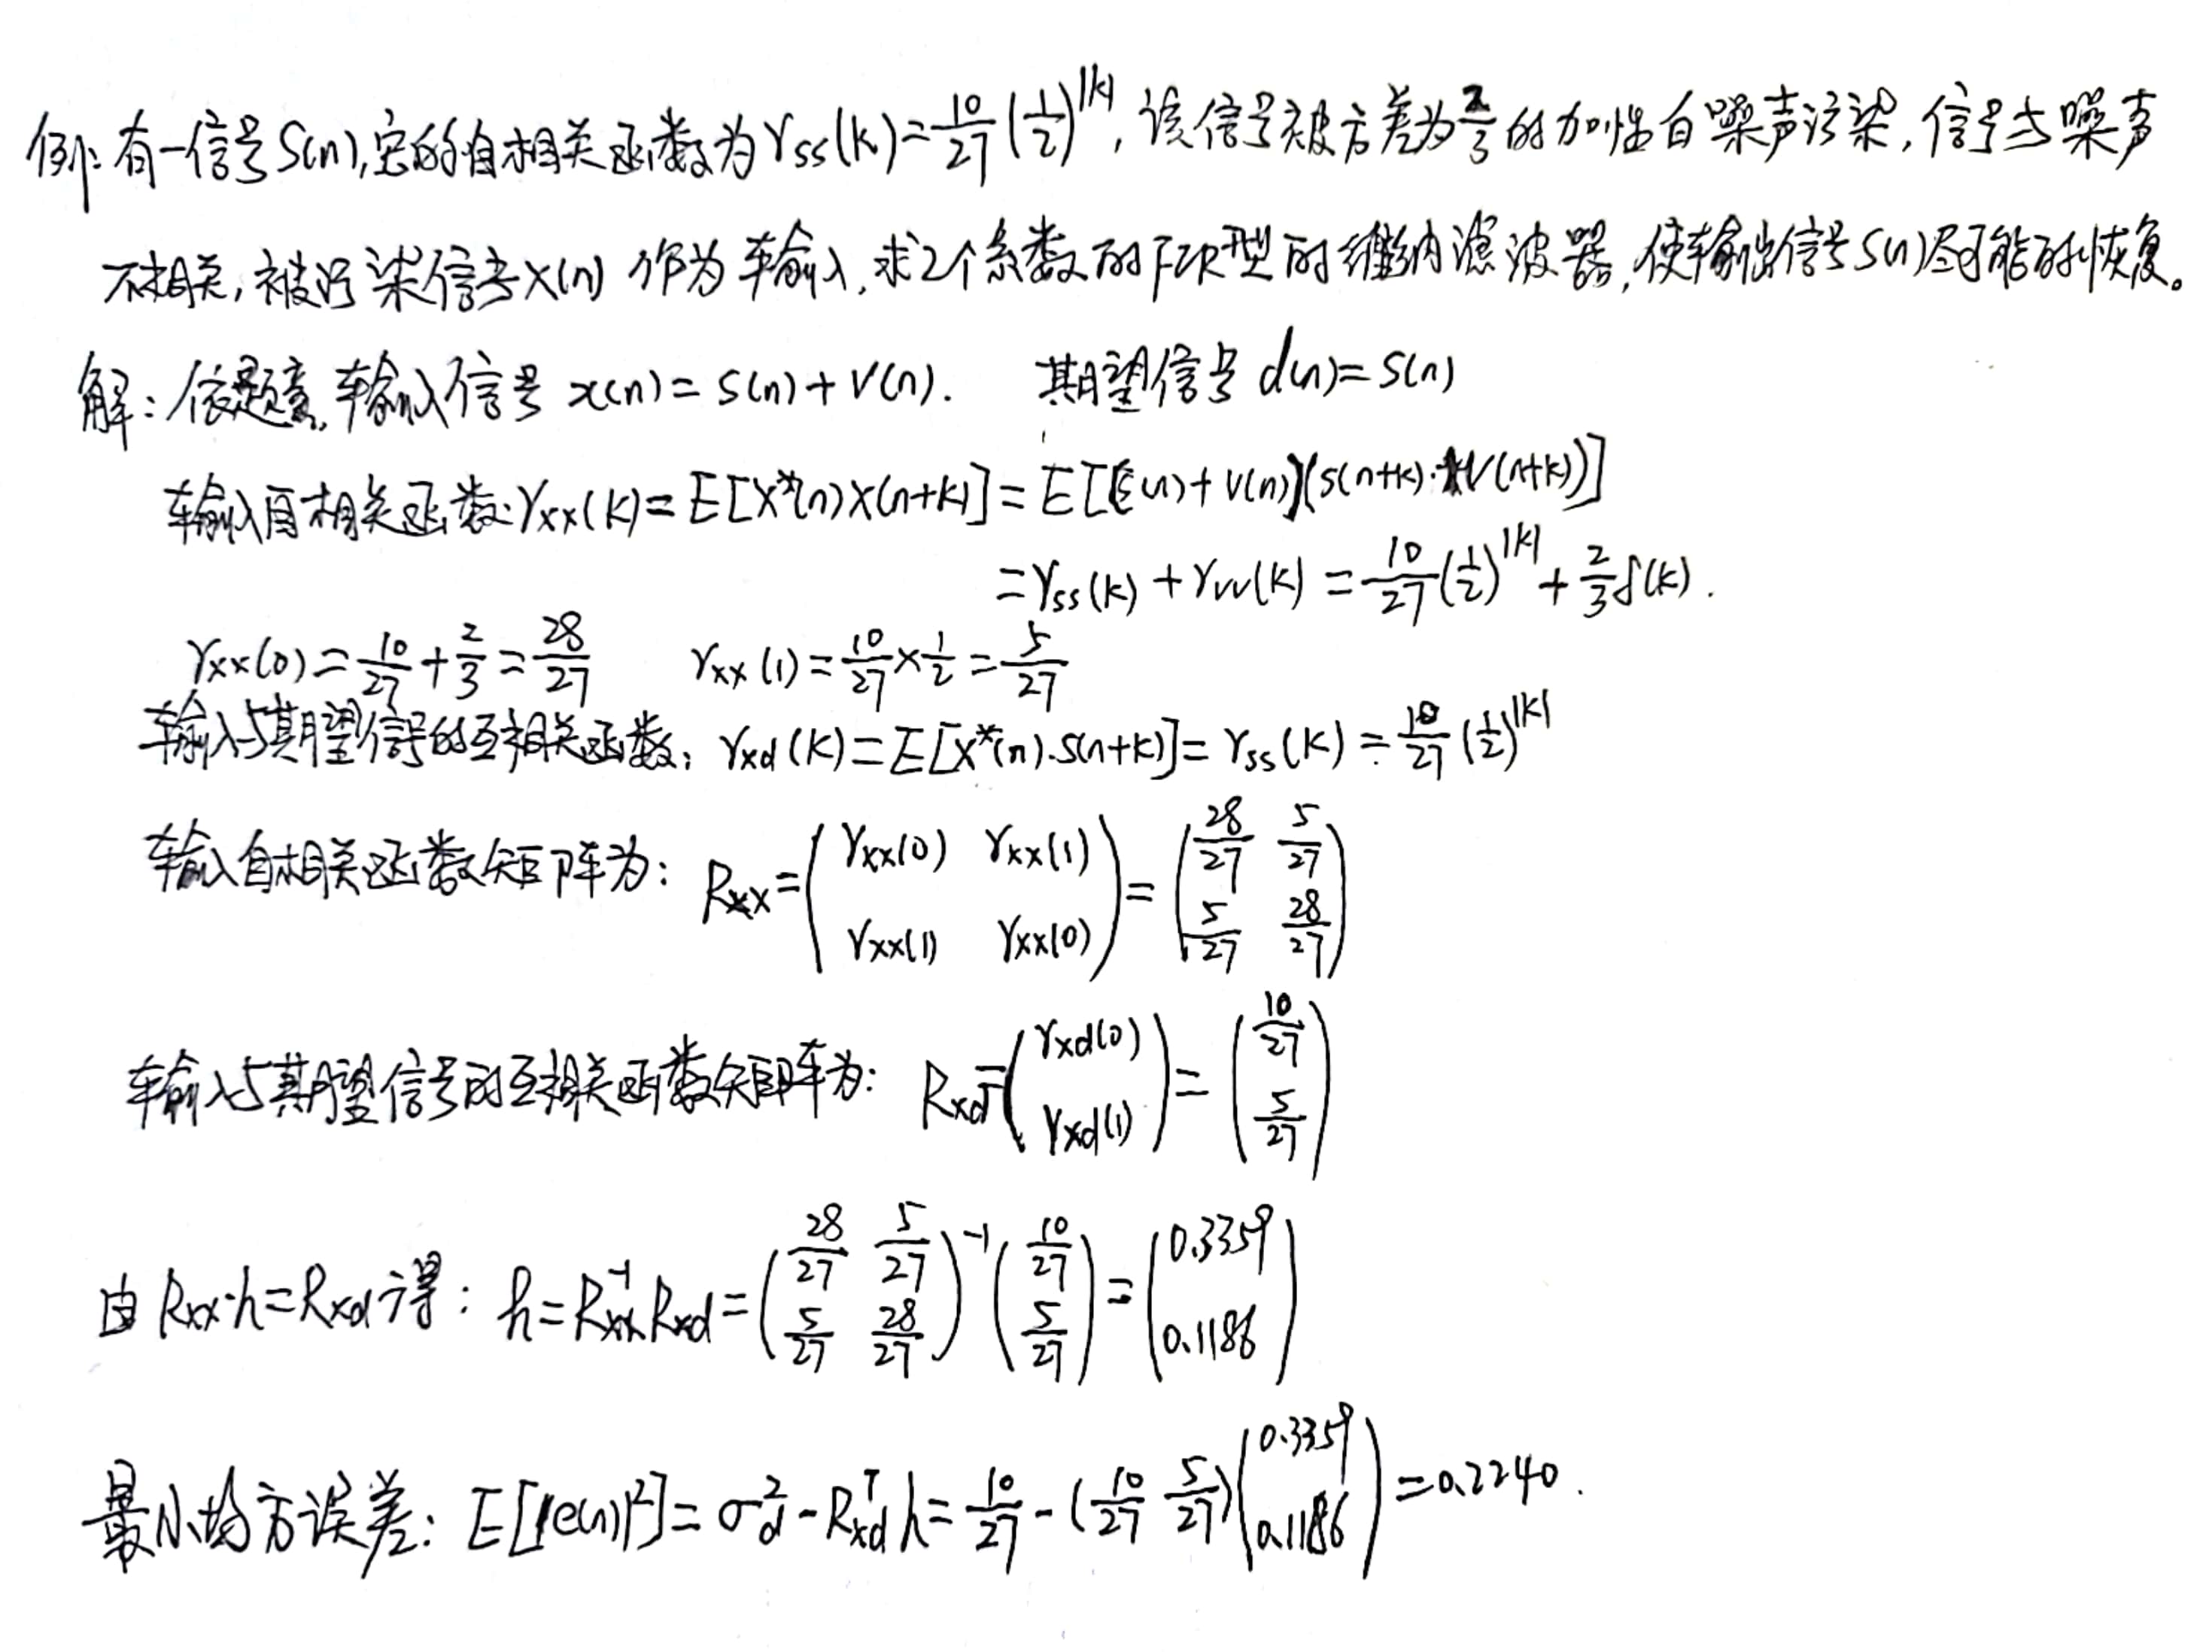 例:有一信号S(n),它的自相关函数为γss(k)=10/27(1/2)^|k|,该信号被方差为2/3的加性白噪声污染,信号与噪声
不相关,被污染信号x(n)作为输入,求2个系数的FIR型的维纳滤波器,使输出信号S(n)尽可能的恢复。
解:依题意,输入信号 x(n)=s(n)+v(n). 期望信号 d(n)=s(n)
输入自相关函数:γxx(k)=E[x*(n)x(n+k)]=E[(s(n)+v(n))(s(n+k)·v(n+k))]
=γss(k)+γvv(k)=10/27(1/2)^|k|+2/3δ(k).
γxx(0)=10/27+2/3=28/27 γxx(1)=10/27×1/2=5/27
输入与期望信号的互相关函数:γxd(k)=E[x*(n)·s(n+k)]=γss(k)=10/27(1/2)^|k|
输入自相关函数矩阵为:Rxx=(γxx(0) γxx(1); γxx(1) γxx(0))=(28/27 5/27; 5/27 28/27)
输入与期望信号的互相关函数矩阵为:Rxd=(γxd(0); γxd(1))=(10/27; 5/27)
由Rxx·h=Rxd得:h=Rxx^-1Rxd=(28/27 5/27; 5/27 28/27)^-1(10/27; 5/27)=(0.3359; 0.1186)
最小均方误差:E[|e(n)|^2]=σd^2-Rxd^T h=10/27-(10/27 5/27)(0.3359; 0.1186)=0.2240.